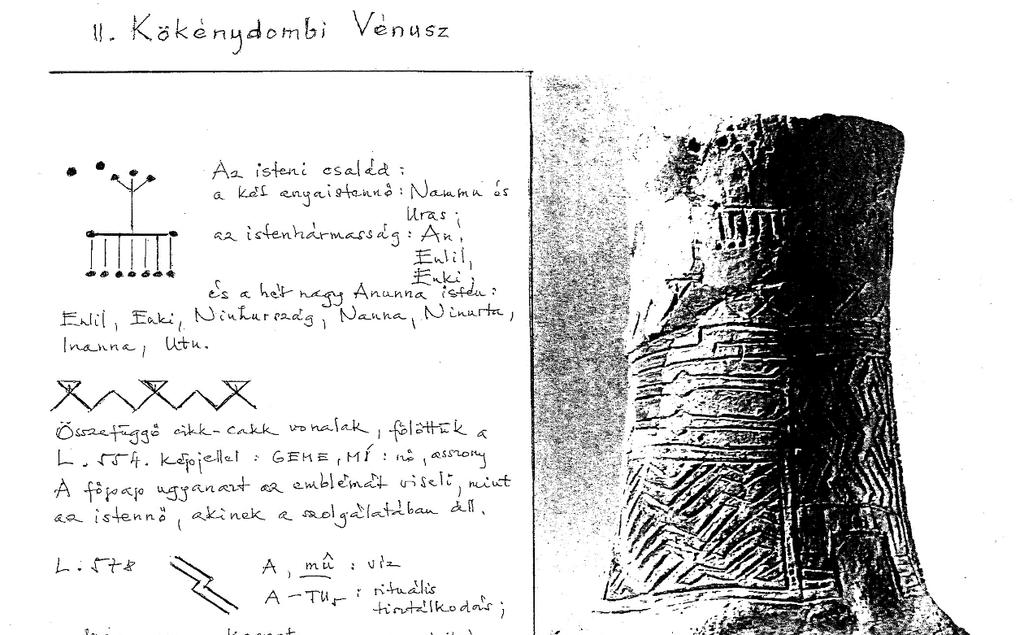 II. Kökénydombi Vénusz
Az isteni család:
a két anyaistennő: Nammu és
Uras;
az istenhármasság: An,
Enlil,
Enki;
és a hét nagy Anunna isten:
Enlil, Enki, Ninhurszág, Nanna, Ninurta,
Inanna, Utu.
Összefüggő cikk-cakk vonalak, fölöttük a
L. 554. képjellel: GEME, MÍ: nő, asszony
A főpap ugyanazt az emblémát viseli, mint
az istennő, akinek a szolgálatában áll.
L. 578 A, mû: víz
A-TU₅: rituális
tisztálkodás;